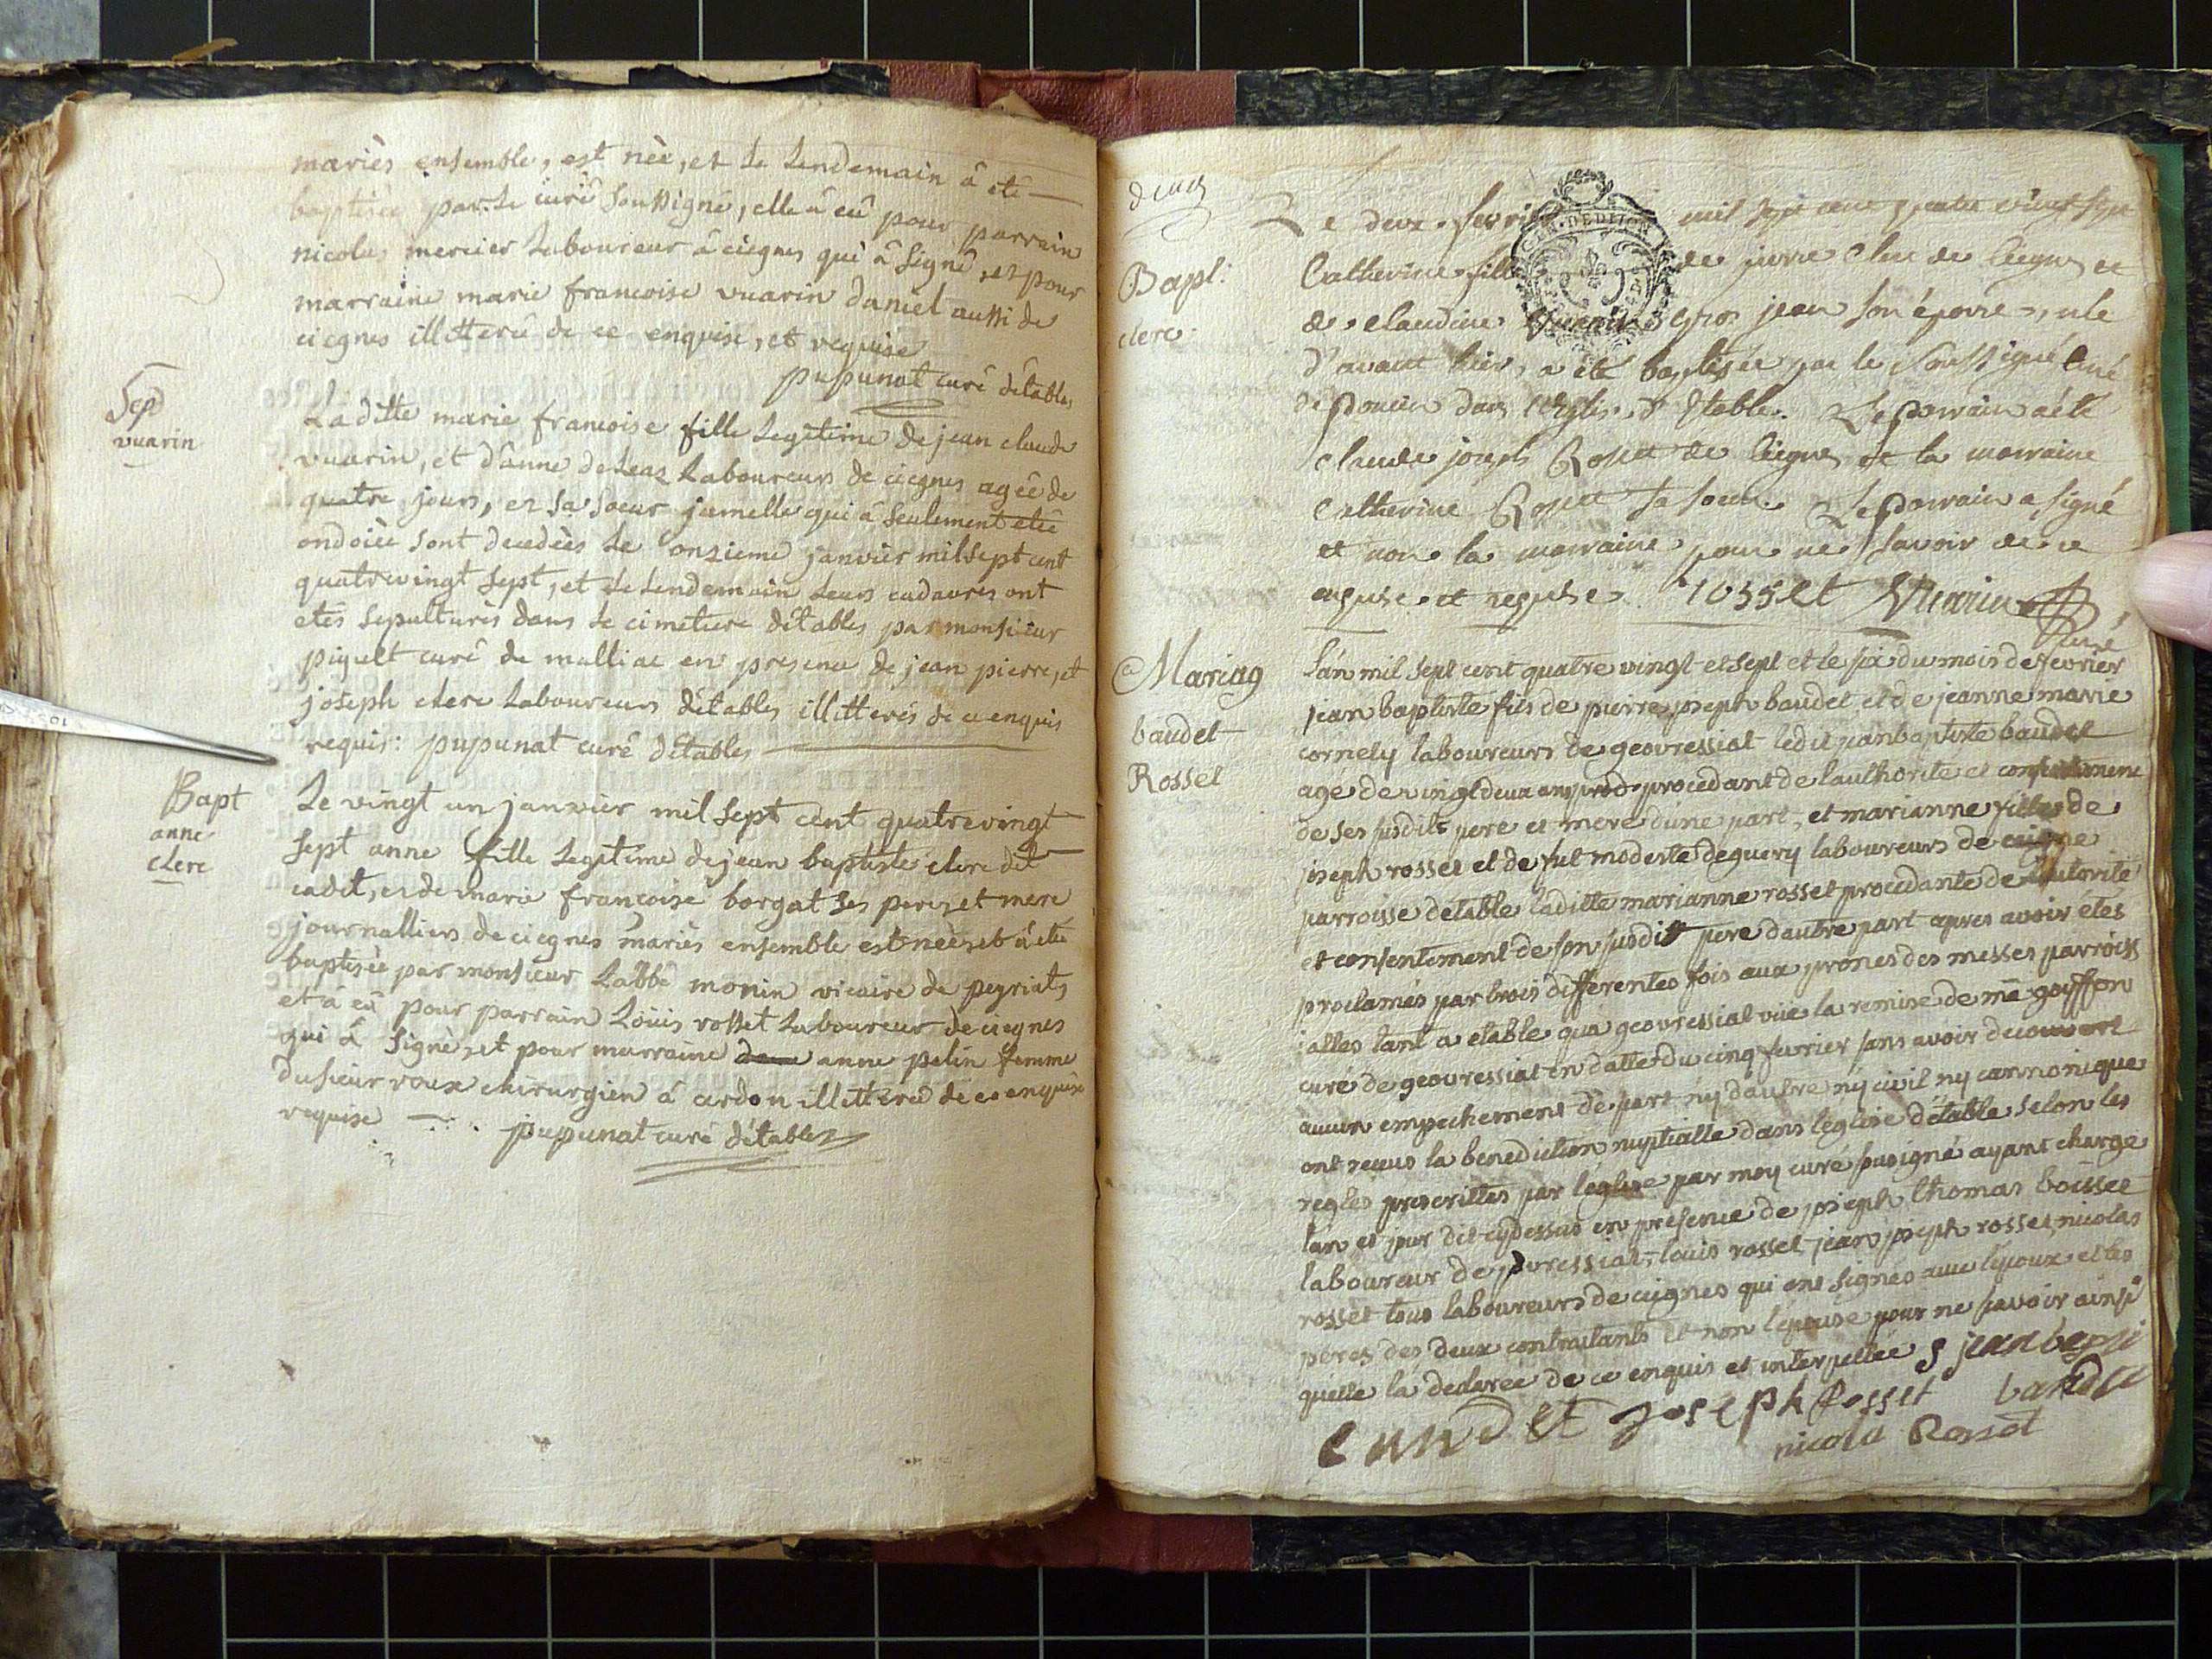 mariès ensemble, est nèe, et le lendemain â été
baptisée par le curé soussigné, elle â eû pour parrain
nicolas mercier laboureur â ciegnes qui â signé, et pour
marraine marie francoise vuarin daniel aussi de
ciegnes illitteré de ce enquise, et requise
pupunat curé détables
Sep
vuarin
La ditte marie francoise fille legitime de jean claude
vuarin, et d'anne deleaz laboureurs de ciegnes agée de
quatre jours, et sa soeur jumelle qui â seulement etée
ondoiée sont decedées le onzieme janvier mil sept cent
quatrevingt sept, et le lendemain leurs cadavres ont
etés sepulturés dans le cimetiere détables par monsieur
piquet curé de malliac en presence de jean pierre, et
joseph clerc laboureurs détables illitterés de ce enquis
requis: pupunat curé détables
Bapt
anne
clerc
Le vingt un janvier mil sept cent quatrevingt
sept anne fille legitime de jean baptiste clerc dit
cadet, et de marie françoise borgat ses pere, et mere
journalliers de ciegnes mariés ensemble est née, et â été
baptisée par monsieur l'abbé monin vicaire de peyriat,
et â eû pour parrain Loüis rosset laboureur de ciegnes
qui â signé, et pour marraine anne pelin femme
du sieur roux chirurgien â cerdon illitteré de ce enquise
requise pupunat curé détables
deux
Bapt:
clerc
Le deux fevrier mil sept cent quatre vingt sept
Catherine fille de pierre Clerc de Ciegnes et
de claudine gros jean son épouse, née
d'avant hier, a été baptisée par le soussigné Curé
de poncin dans l'Eglise d'Etable. Le parrain a été
claude joseph Rosset de Ciegnes et la marraine
Catherine Rosset sa soeur. Le parrain a signé
et non la marraine pour ne savoir de ce
enquise et requise. rosset Vuarin
Curé
Mariag
baudet
Rosset
L'an mil sept cent quatre vingt et sept et le six du mois de fevrier
jean baptiste fils de pierre joseph baudet et de jeanne marie
cornely laboureurs de geovressiat ledit jean baptiste baudet
agé de vingt deux ans procedant de l'authorité et consentement
de ses susdits pere et mere d'une part, et marianne fille de
joseph rosset et de fut modeste deguery laboureurs de ceigne
parroisse detable laditte marianne rosset procedante de l'autorité
et consentement de son susdit pere d'autre part apres avoir étés
proclamés par trois differentes fois aux prones des messes parrois
ialles tant a etable qu'a geovressiat vüe la remise de mre gouffon
curé de geovressiat en datte du cinq fevrier sans avoir decouvert
aucun empechement de part ny d'autre ny civil ny cannonique
ont recus la benediction nuptialle dans l'eglise détable selon les
regles prescrittes par l'eglise par moy curé susigné ayant charge
l'an et jour dit cydessus en presence de joseph thomas boisset
laboureur de geovressiat, louis rosset, jean joseph rosset, nicolas
rosset tous laboureurs de ceignes qui ont signés avec l'epoux et les
peres des deux contractants et non l'épouse pour ne savoir ainsi
quelle la declarée de ce enquis et interpellée jean bapti
baudet Joseph Rosset baudet
nicola Rosset